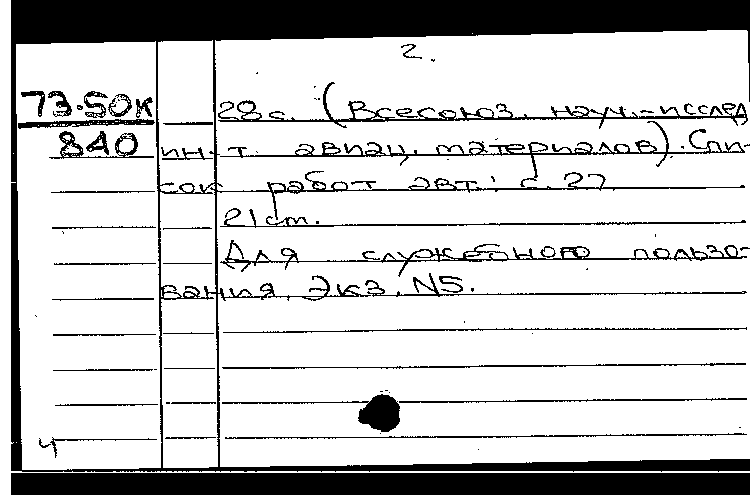 2.
73-50к 28 с. (Всесоюз. науч.-исслед
840 ин-т. авиац. материалов). Спи-
сок работ авт.: с. 27
21 см.
Для служебного пользо-
вания. Экз. N5.
4